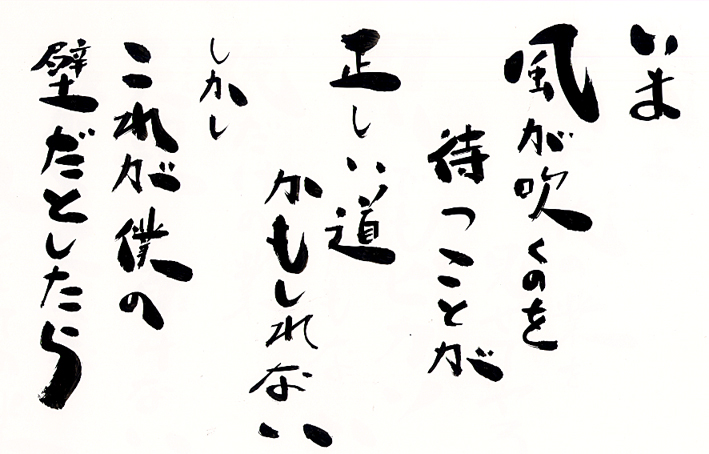 いま
風が吹くのを
待つことが
正しい道
かもしれない
しかし
これが僕の
壁だとしたら